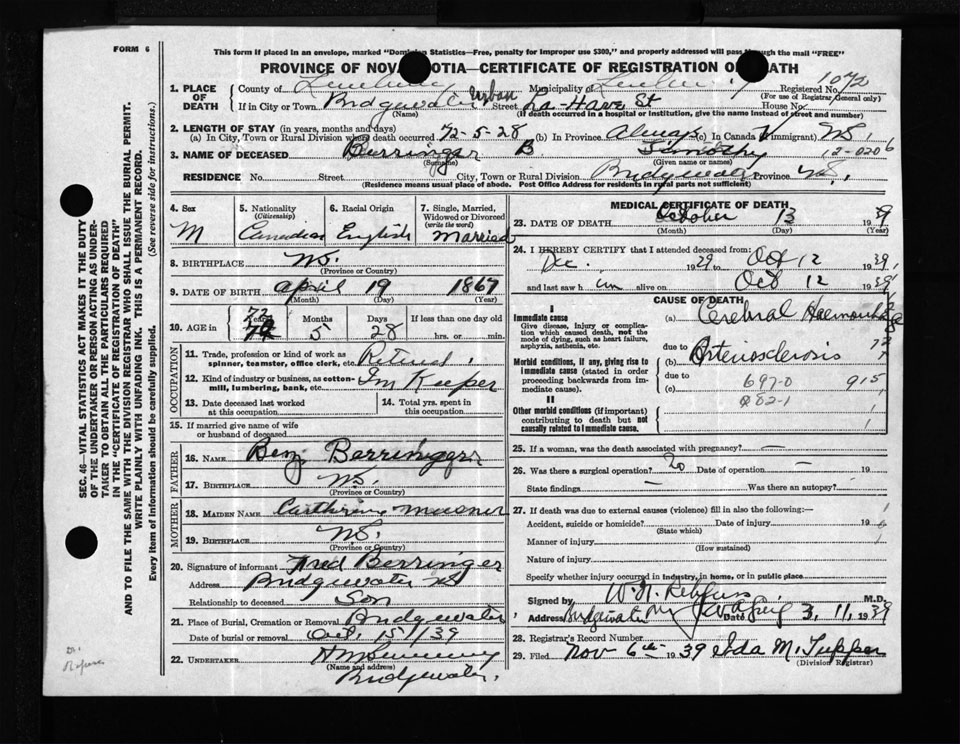 FORM 6
This form if placed in an envelope, marked "Dominion Statistics—Free, penalty for improper use $300," and properly addressed will pass through the mail "FREE"
PROVINCE OF NOVA SCOTIA—CERTIFICATE OF REGISTRATION OF DEATH
1072
1. PLACE OF DEATH
County of Lunenburg Municipality of Lunenburg Registered No.
(For use of Registrar General only)
If in City or Town Bridgewater Urban Street La-Have St House No.
(Name) (If death occurred in a hospital or institution, give the name instead of street and number)
2. LENGTH OF STAY (in years, months and days)
(a) In City, Town or Rural Division where death occurred 72-5-28 (b) In Province Always (c) In Canada (if immigrant) N.S.
3. NAME OF DECEASED Berringer B. Timothy 12-0206
(Surname) (Given name or names)
RESIDENCE No. Street City, Town or Rural Division Bridgewater Province N.S.
(Residence means usual place of abode. Post Office Address for residents in rural parts not sufficient)
4. Sex
M
5. Nationality
(Citizenship)
Canadian
6. Racial Origin
English
7. Single, Married, Widowed or Divorced
(write the word)
Married
8. BIRTHPLACE N.S.
(Province or Country)
9. DATE OF BIRTH April 19 1867
(Month) (Day) (Year)
10. AGE in
72
Years Months Days If less than one day old
5 28 hrs. or min.
OCCUPATION
11. Trade, profession or kind of work as spinner, teamster, office clerk, etc. Retired
12. Kind of industry or business, as cotton-mill, lumbering, bank, etc. Inn Keeper
13. Date deceased last worked at this occupation
14. Total yrs. spent in this occupation
15. If married give name of wife or husband of deceased
FATHER
16. NAME Benj Berringer
17. BIRTHPLACE N.S.
(Province or Country)
MOTHER
18. MAIDEN NAME Cathrine Meisner
19. BIRTHPLACE N.S.
(Province or Country)
20. Signature of informant Fred Berringer
Address Bridgewater NS
Relationship to deceased Son
21. Place of Burial, Cremation or Removal Bridgewater
Date of burial or removal Oct. 15/39
22. UNDERTAKER
(Name and address)
Bridgewater.
MEDICAL CERTIFICATE OF DEATH
23. DATE OF DEATH October 13 1939
(Month) (Day) (Year)
24. I HEREBY CERTIFY that I attended deceased from:
Dec. 1929 to Oct 12 1939
and last saw him alive on Oct 12 1939
CAUSE OF DEATH
I
Immediate cause
Give disease, injury or complication which caused death, not the mode of dying, such as heart failure, asphyxia, asthenia, etc.
(a) Cerebral Haemorrhage
due to
Morbid conditions, if any, giving rise to immediate cause (stated in order proceeding backwards from immediate cause).
(b) Arteriosclerosis
due to
(c) 697-0 915
082-1
II
Other morbid conditions (if important) contributing to death but not causally related to immediate cause.
25. If a woman, was the death associated with pregnancy? —
26. Was there a surgical operation? no Date of operation — 19
State findings — Was there an autopsy?
27. If death was due to external causes (violence) fill in also the following:—
Accident, suicide or homicide? Date of injury 19
(State which)
Manner of injury
(How sustained)
Nature of injury
Specify whether injury occurred in industry, in home, or in public place
Signed by W.N. Rehfuss M.D.
Address Bridgewater Date 3, 11, 1939
28. Registrar's Record Number
29. Filed Nov 6th 1939 Ida M. Tupper
(Division Registrar)
SEC. 46—VITAL STATISTICS ACT MAKES IT THE DUTY
OF THE UNDERTAKER OR PERSON ACTING AS UNDER-
TAKER TO OBTAIN ALL THE PARTICULARS REQUIRED
IN THE "CERTIFICATE OF REGISTRATION OF DEATH"
AND TO FILE THE SAME WITH THE DIVISION REGISTRAR WHO SHALL ISSUE THE BURIAL PERMIT.
WRITE PLAINLY WITH UNFADING INK. THIS IS A PERMANENT RECORD.
Every item of information should be carefully supplied. (See reverse side for instructions.)